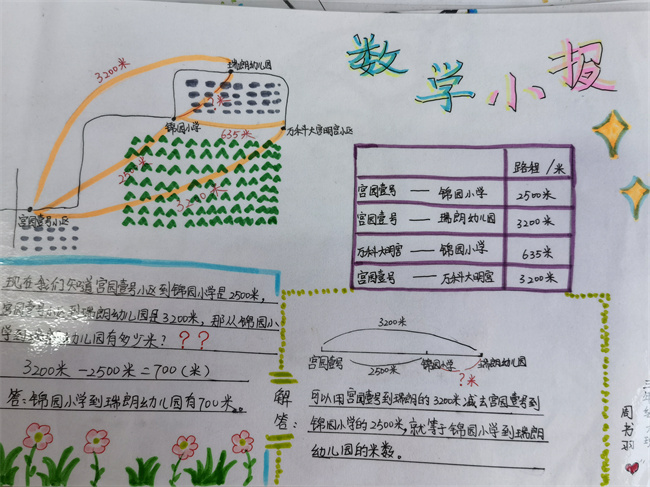 数学小报
3200米
瑞朗幼儿园
?米
锦园小学
635米
万科大明宫小区
2500米
3200米
宫园壹号小区
路程/米
宫园壹号 — 锦园小学 2500米
宫园壹号 — 瑞朗幼儿园 3200米
万科大明宫 — 锦园小学 635米
宫园壹号 — 万科大明宫 3200米
现在我们知道宫园壹号小区到锦园小学是2500米,
宫园壹号小区到瑞朗幼儿园是3200米,那从锦园小
学到瑞朗幼儿园有多少米???
3200米-2500米=700(米)
答:锦园小学到瑞朗幼儿园有700米。
3200米
宫园壹号 2500米 锦园小学 ?米 瑞朗幼儿园
解答:
可以用宫园壹号到瑞朗的3200米减去宫园壹号到
锦园小学的2500米,就等于锦园小学到瑞朗
幼儿园的米数。
周书羽